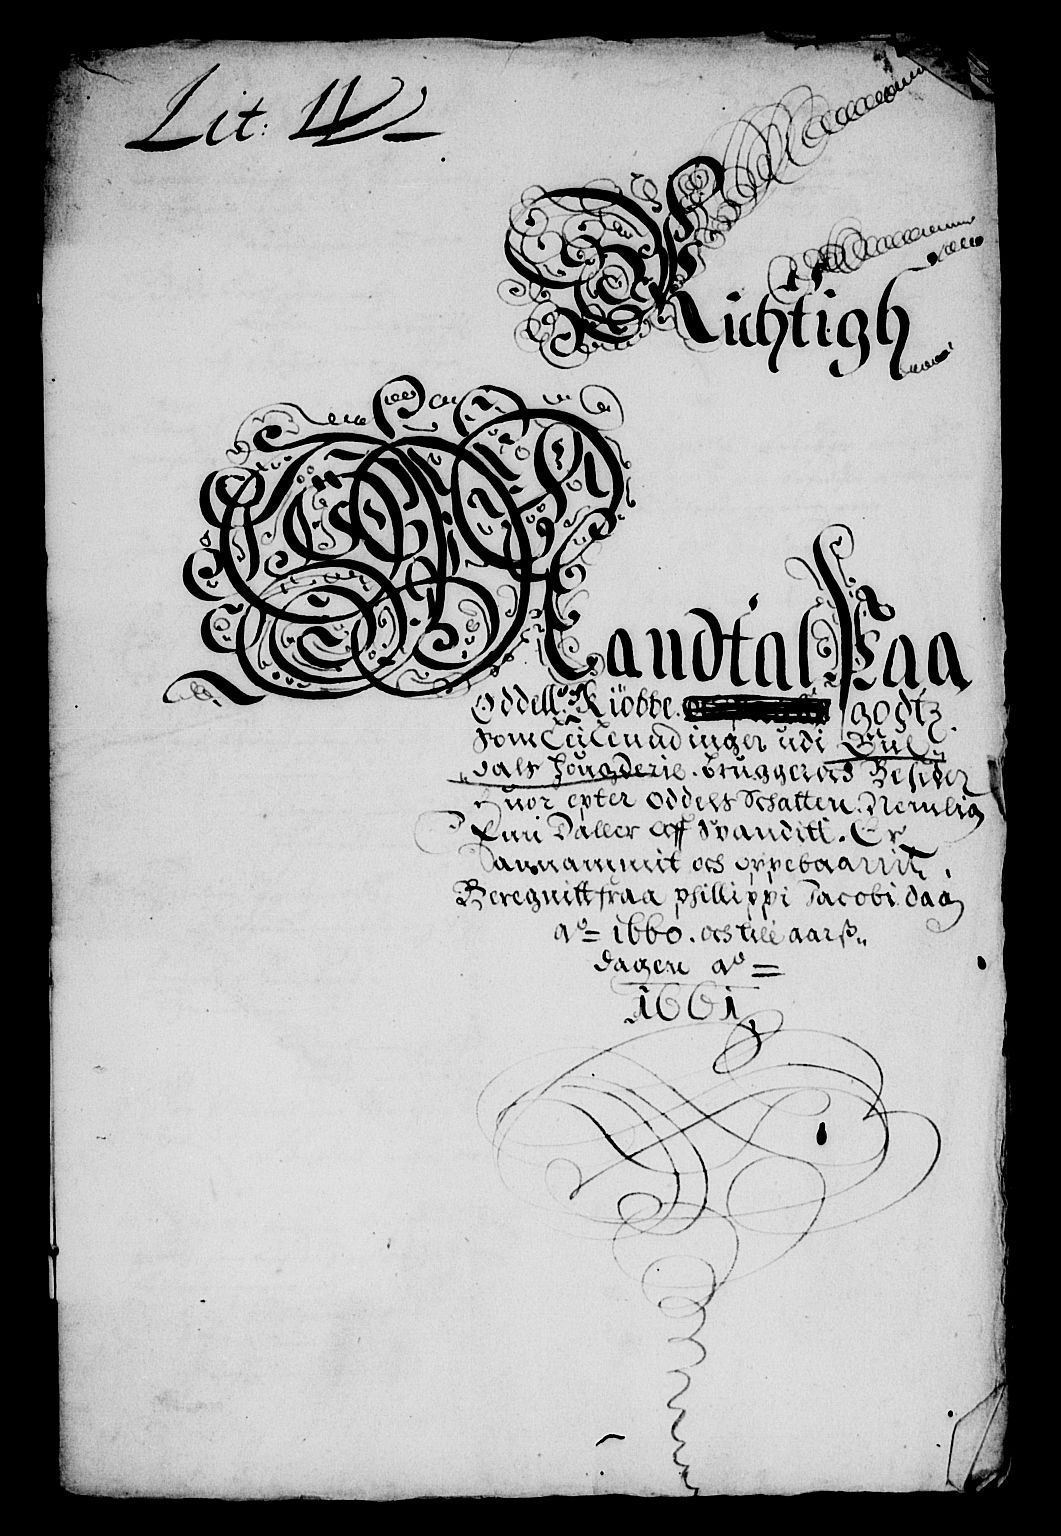 Lit: W
Richtigh
Mandtal Paa
Oddell. Kiöbbe. godtz
Som Leilendinger udi Gul
dals fougderie. bruggere och Besider
huor epter oddelß Schatten. Nemblig
Sin Daller aff Spanditt. Er
Annammit och oppebaarin.
Beregnitt fraa phillippi Jacobi dag
Ao= 1660. och till aarß
dagen Ao=
1661